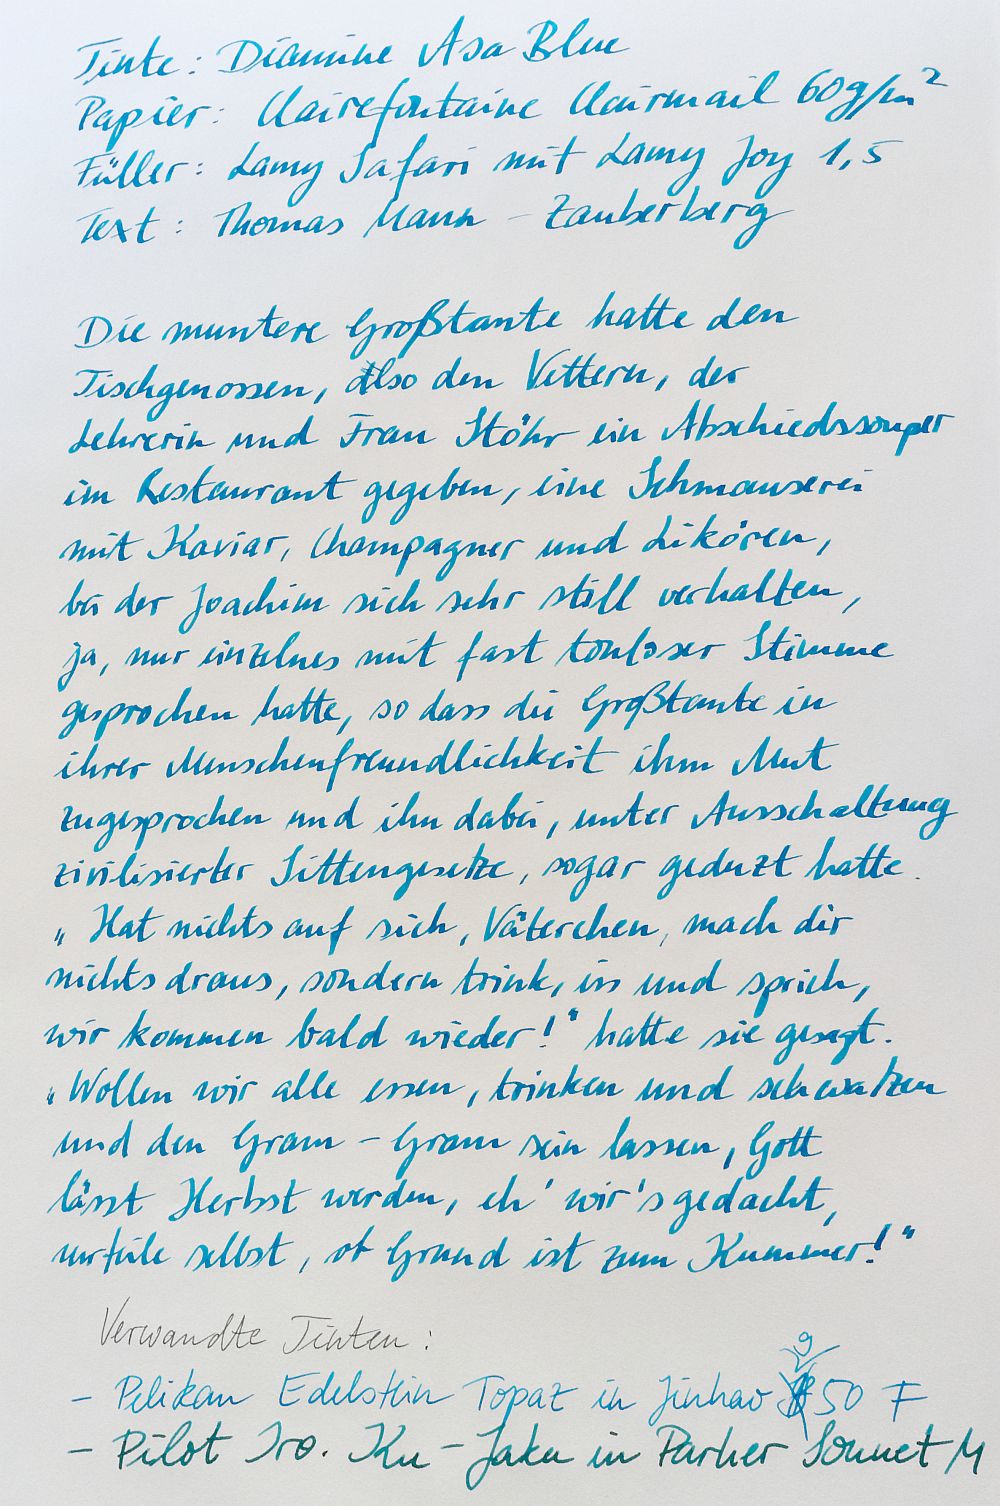 Tinte: Diamine Asa Blue
Papier: Clairefontaine Clairmail 60g/m²
Füller: Lamy Safari mit Lamy Joy 1,5
Text: Thomas Mann – Zauberberg
Die muntere Großtante hatte den
Tischgenossen, also den Vettern, der
Lehrerin und Frau Stöhr ein Abschiedssouper
im Restaurant gegeben, eine Schmauserei
mit Kaviar, Champagner und Likören,
bei der Joachim sich sehr still verhalten,
ja, nur einzelnes mit fast tonloser Stimme
gesprochen hatte, so dass die Großtante in
ihrer Menschenfreundlichkeit ihm Mut
zugesprochen und ihn dabei, unter Ausschaltung
zivilisierter Sittengesetze, sogar geduzt hatte.
„Hat nichts auf sich, Väterchen, mach dir
nichts draus, sondern trink, iss und sprich,
wir kommen bald wieder!“ hatte sie gesagt.
„Wollen wir alle essen, trinken und schwatzen
und den Gram – Gram sein lassen, Gott
lässt Herbst werden, eh' wir's gedacht,
urteile selbst, ob Grund ist zum Kummer!“
Verwandte Tinten:
– Pelikan Edelstein Topaz in Jinhao 950 F
– Pilot Iro. Ku-Jaku in Parker Sonnet M